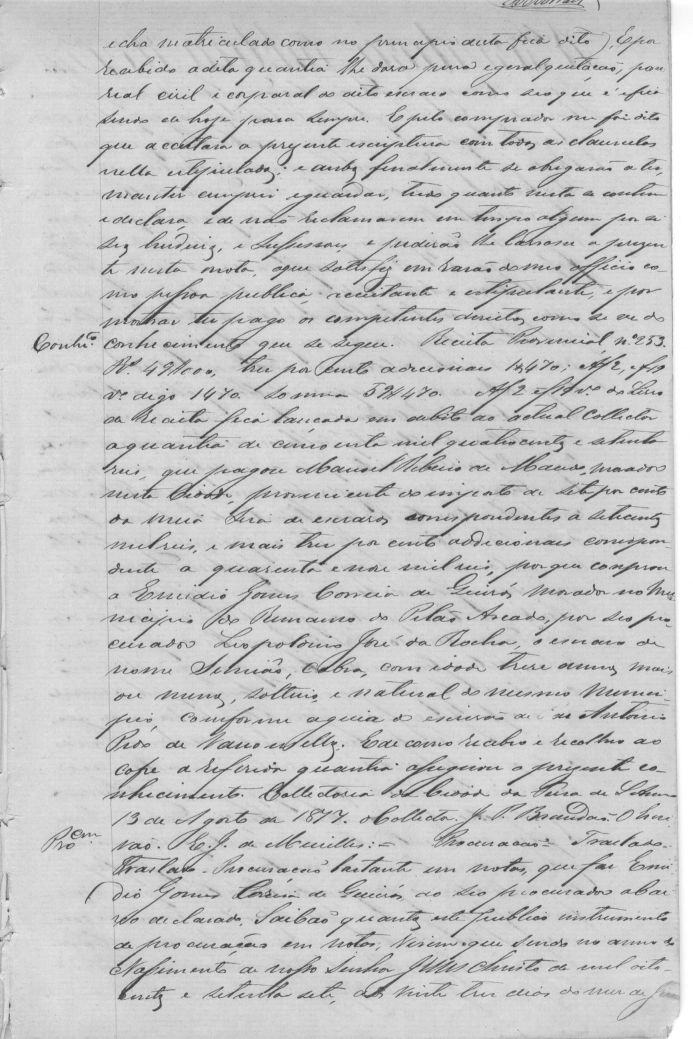 e cha matriculado como no principio desta fica dito), E por
recebido a dita quantia lhe dara pura e geral quitação, pou
real civil e corporal do dito escravo como seo que é e fica
sendo de hoje para sempre. E pelo comprador me foi dito
que aceitara a prezente escriptura com todas as clausulas
nella estipuladas; e ambos finalmente se obrigarão a ter,
manter cumprir e guardar, tudo quanto nesta se contem
e declara, e de não reclamarem em tempo algum por si
seos herdeiros, e sussessores e pedirão lhe lavrasse a prezen
te nesta nota, o que satisfiz em razão do meo officio co
mo pessoa publica aceitante e estipulante, e por
mostrar ter pago os competentes direitos como se ve do
Conhecto. conhecimento que se segue. Receita Provincial nº 253.
Rs. 49$000, tres por cento adicionais 1$470; Af 2, fls
vº digo 1470. Somma 50$470. Af 2 fls vº do Livro
da Receita fica lançada em debito ao actual Collector
a quantia de cincoenta mil quatrocentos e setenta
reis, que pagou Manoel Ribeiro de Macedo, morador
nesta Cidade, proveniente do imposto de sete por cento
da meia Siza de escravos correspondentes a setecentos
mil reis, e mais tres por cento addicionais correspon
dente a quarenta e nove mil reis, por que comprou
a Emidio Gomes Correia de Queirós, morador no Mu
nicipio do Remanso do Pilão Arcado, por seo pro
curador Leopoldino José da Rocha, o escravo de
nome Simião, Cabra, com idade treze annos mais
ou menos, solteiro, e natural do mesmo Munici
pio, comforme a guia do escrivão de Antonio
de Vasconcellos. E de como recebeo e recolheo ao
cofre a referida quantia assignou o prezente co
nhecimento. Collectoria da Cidade da Feira de Santanna
13 de Agosto de 1877. O Collector J. P. Brandão O Escri
Procem. vão. E. J. de Meirelles: = Procuração = Traslado.
Traslado. Procuração bastante em notas, que faz Emi
dio Gomes Correia de Queirós, ao seo procurador abai
xo declarado, Saibão quantos este publico instrumento
de procuração em notas, virem que sendo no anno do
Nassimento de nosso Senhor Jesus Christo de mil oito
centos e setenta sete, aos vinte tres dias do mez de